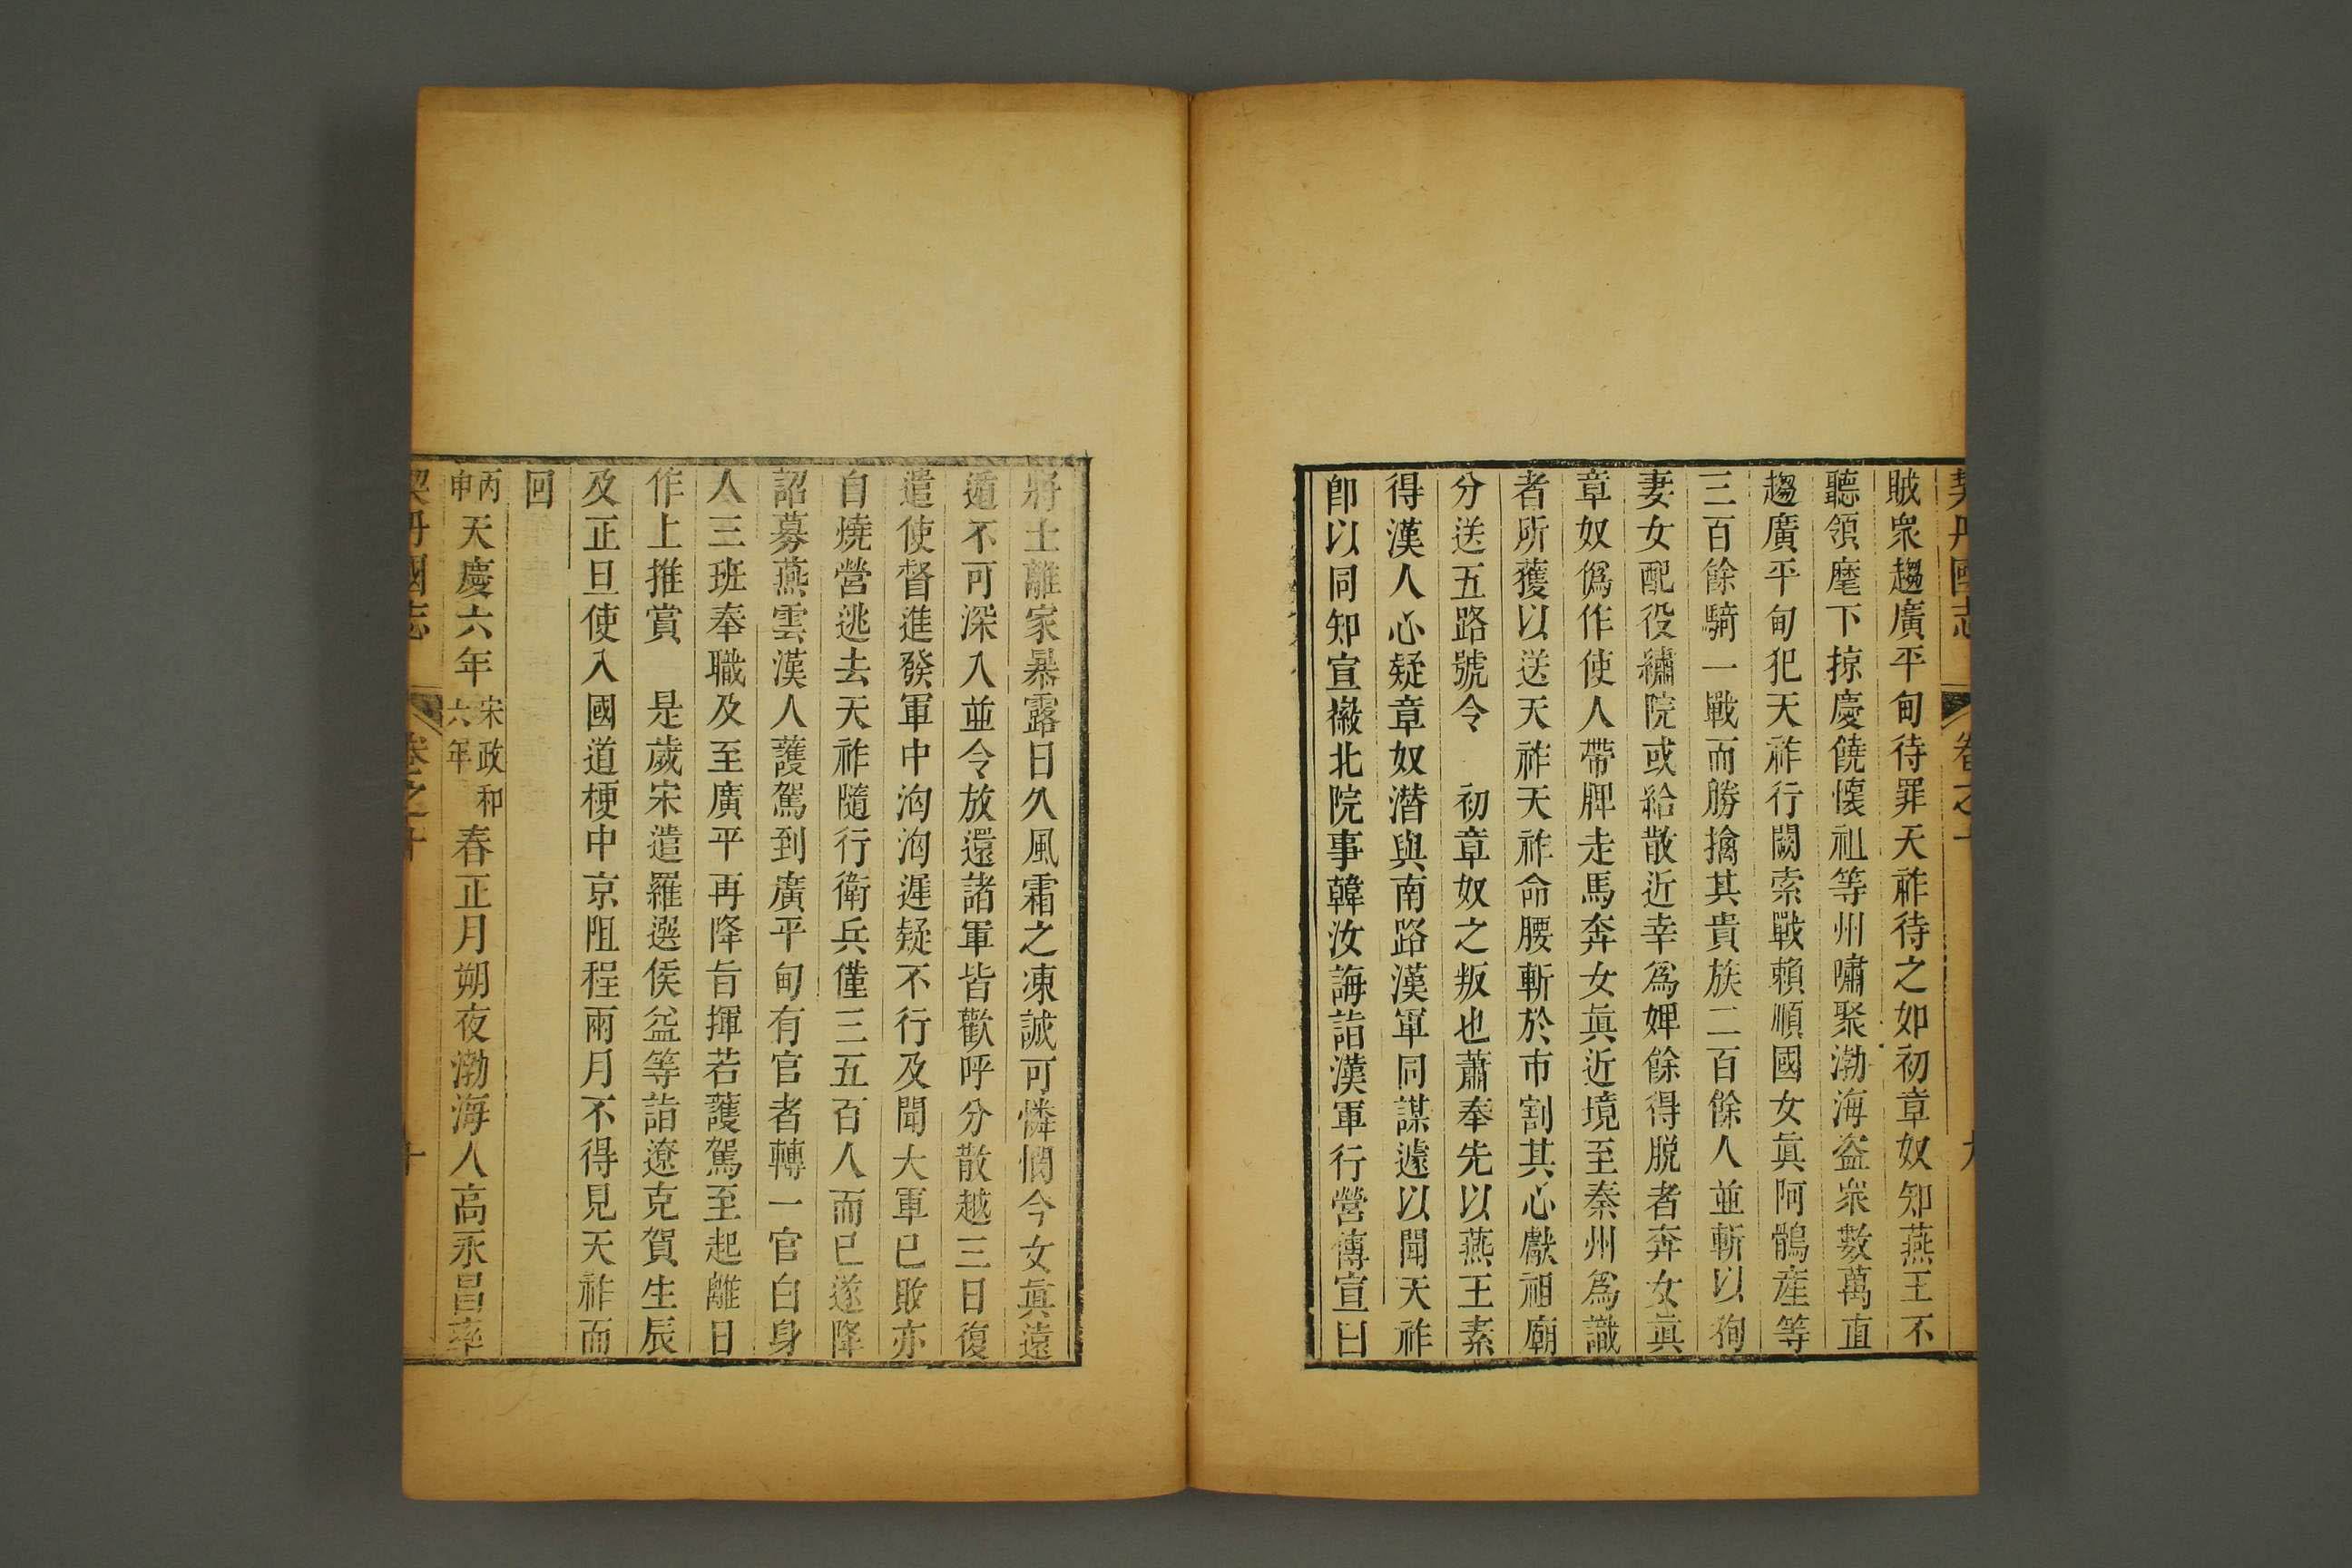 契丹國志 卷之十 九
賊衆趨廣平甸待罪天祚待之如初章奴知燕王不
聽領麾下掠慶饒懷祖等州嘯聚渤海盜衆數萬直
趨廣平甸犯天祚行闕索戰賴順國女眞阿鶻產等
三百餘騎一戰而勝擒其貴族二百餘人並斬以徇
妻女配役繡院或給散近幸爲婢餘得脱者奔女眞
章奴僞作使人帶牌走馬奔女眞近境至秦州爲識
者所獲以送天祚天祚命腰斬於市割其心獻祖廟
分送五路號令　初章奴之叛也蕭奉先以燕王素
得漢人心疑章奴潛與南路漢軍同謀遽以聞天祚
卽以同知宣徽北院事韓汝誨詣漢軍行營傳宣曰
將士離家暴露日久風霜之凍誠可憐憫今女眞遠
遁不可深入並令放還諸軍皆歡呼分散越三日復
遣使督進發軍中洶洶遲疑不行及聞大軍已敗亦
自燒營逃去天祚隨行衛兵僅三五百人而已遂降
詔募燕雲漢人護駕到廣平甸有官者轉一官白身
人三班奉職及至廣平再降旨揮若護駕至起離日
作上推賞　是歲宋遣羅選侯益等詣遼克賀生辰
及正旦使入國道梗中京阻程兩月不得見天祚而
回
丙申天慶六年宋政和六年春正月朔夜渤海人高永昌率
契丹國志 卷之十 十